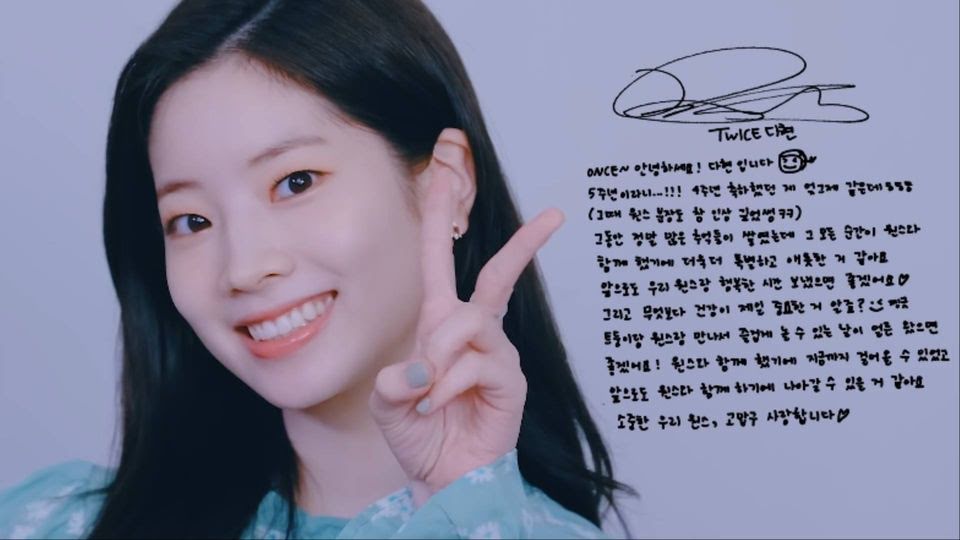 TWICE 다현
ONCE~ 안녕하세요! 다현입니다
5주년이라니...!!! 4주년 축하했던 게 엊그제 같은데ㅎㅎㅎ
(그때 원스 분장도 참 인상 깊었썽ㅋㅋ)
그동안 정말 많은 추억들이 쌓였는데 그 모든 순간이 원스라
함께 했기에 더욱 더 특별하고 애틋한 거 같아요
앞으로도 우리 원스랑 행복한 시간 보냈으면 좋겠어요♡
그리고 무엇보다 건강이 제일 중요한 거 알죠?
트둥이랑 원스랑 만나서 즐겁게 놀 수 있는 날이 얼른 왔으면
좋겠어요! 원스라 함께 했기에 지금까지 걸어올 수 있었고
앞으로도 원스라 함께 하기에 나아갈 수 있을 거 같아요
소중한 우리 원스, 고맙구 사랑합니다♡